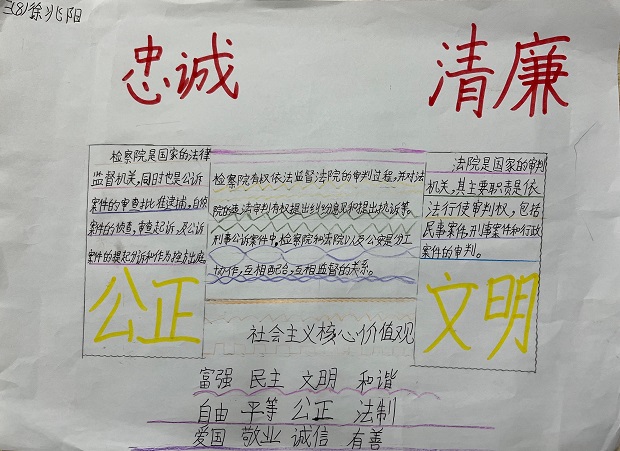 三(8)徐兆阳
忠诚 清廉
检察院是国家的法律
监督机关,同时也是公诉
案件的审查批准逮捕,自侦
案件的侦查,审查起诉,及公诉
案件的提起公诉和作为控方出庭
公正
检察院有权依法监督法院的审判过程,并对法
院的违法审判有权提出纠纷意见和提出抗诉等。
刑事公诉案件中,检察院和法院以及公安是分工
协作,互相配合,互相监督的关系。
法院是国家的审判
机关,其主要职责是依
法行使审判权,包括
民事案件,刑事案件和行政
案件的审判。
文明
社会主义核心价值观
富强 民主 文明 和谐
自由 平等 公正 法制
爱国 敬业 诚信 有善